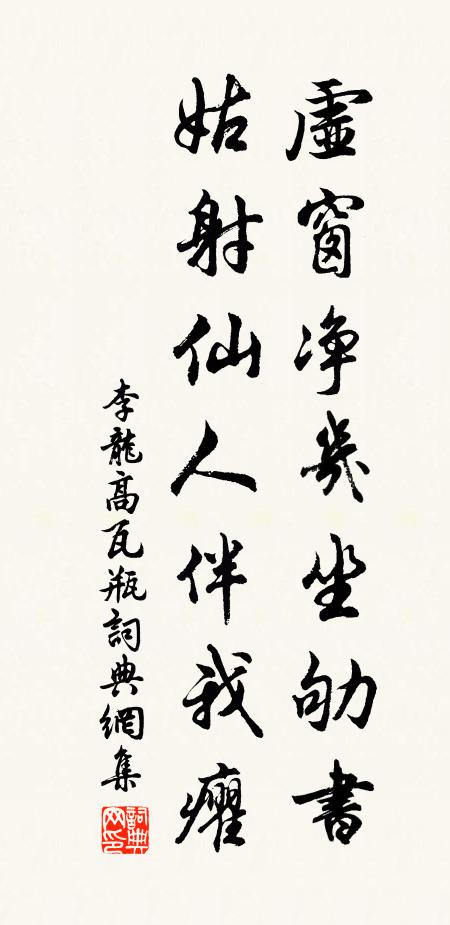 虛窗净幾坐劬書
姑射仙人伴我癯
李龍高瓦瓶詞典網集
詞典网印